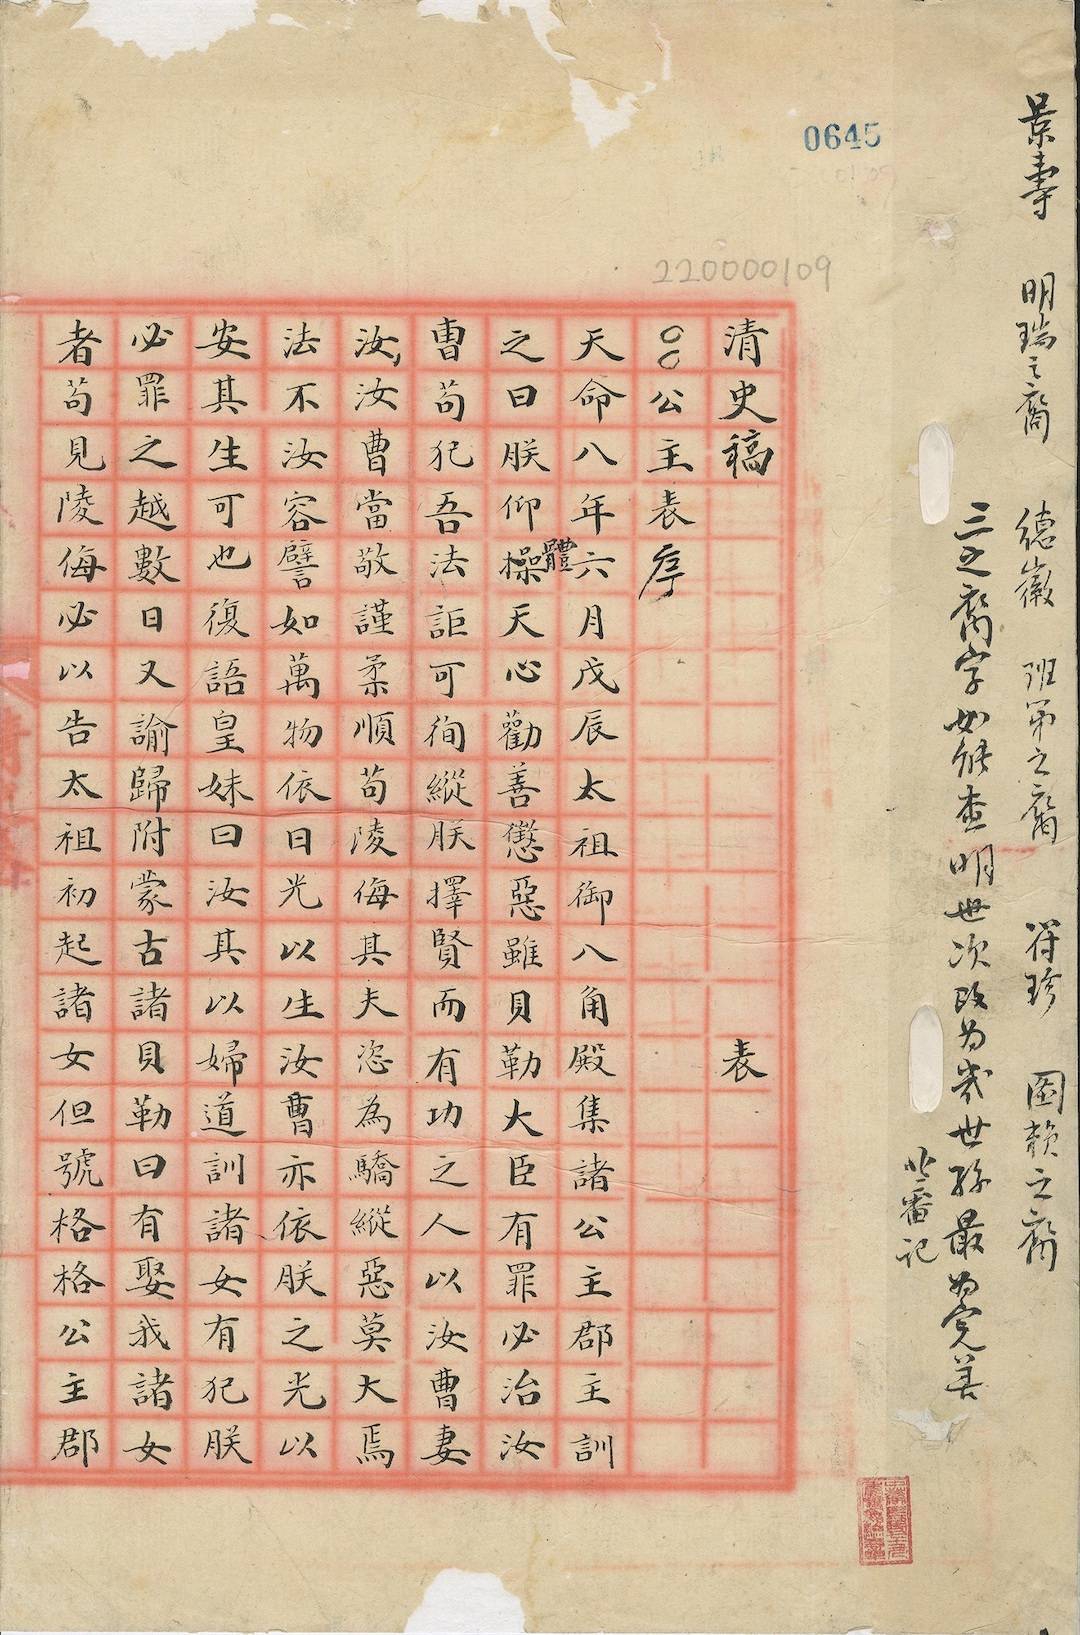 0645
220000109
景壽 明瑞之裔 德徽 班第之裔 符珍 圖賴之裔
三之裔字如能查明世次改為幾世孫最為完善
清史稿 表
○○公主表序
天命八年六月戊辰太祖御八角殿集諸公主郡主訓
之曰朕仰操天心勸善懲惡雖貝勒大臣有罪必治汝
體
曹苟犯吾法詎可徇縱朕擇賢而有功之人以汝曹妻
汝,汝曹當敬謹柔順苟陵侮其夫恣為驕縱惡莫大焉
法不汝容譬如萬物依日光以生汝曹亦依朕之光以
安其生可也復語皇妹曰汝其以婦道訓諸女有犯朕
必罪之越數日又諭歸附蒙古諸貝勒曰有娶我諸女
者苟見陵侮必以告太祖初起諸女但號格格公主郡